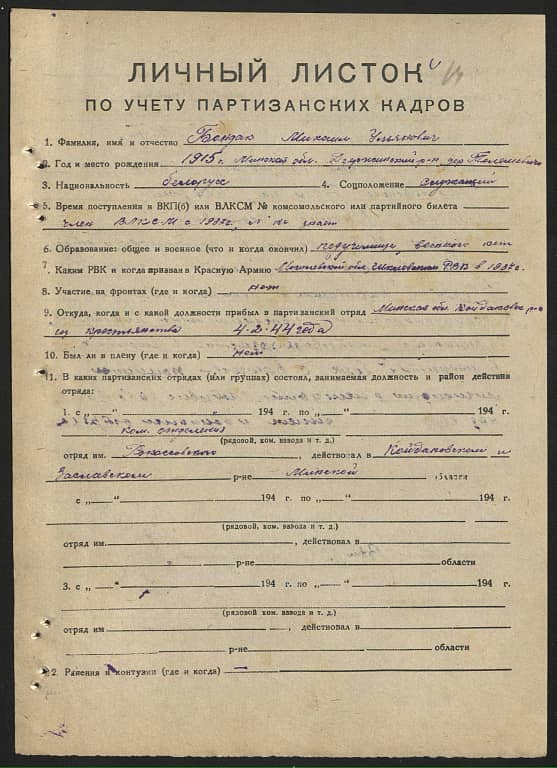 ЛИЧНЫЙ ЛИСТОК
ПО УЧЕТУ ПАРТИЗАНСКИХ КАДРОВ
1. Фамилия, имя и отчество Бондак Михаил Ульянович
2. Год и место рождения 1915 г. Минской обл. Дзержинский р-н, дер.
3. Национальность белорус 4. Соцположение служащий
5. Время поступления в ВКП(б) или ВЛКСМ № комсомольского или партийного билета
член ВЛКСМ с
6. Образование: общее и военное (что и когда окончил) педучилище, военного нет
7. Каким РВК и когда призван в Красную Армию РВК в 1937 г.
8. Участие на фронтах (где и когда) нет
9. Откуда, когда и с какой должности прибыл в партизанский отряд Минская обл. Койдановск. р-н
из крестьянства 4.2.44 года
10. Был ли в плену (где и когда) нет
11. В каких партизанских отрядах (или группах) состоял, занимаемая должность и район действия
отряда:
1. с „ “ 194 г. по „ “ 194 г.
ком. отделения
(рядовой, ком. взвода и т. д.)
отряд им. , действовал в Койдановском и
Заславском р-не Минской области
с „ “ 194 г. по „ “ 194 г.
(рядовой, ком. взвода и т. д.)
отряд им. , действовал в
р-не области
3. с „ “ 194 г. по „ “ 194 г.
(рядовой, ком. взвода и т. д.)
отряд им , действовал в
р-не области
2. Ранения и контузии (где и когда) —